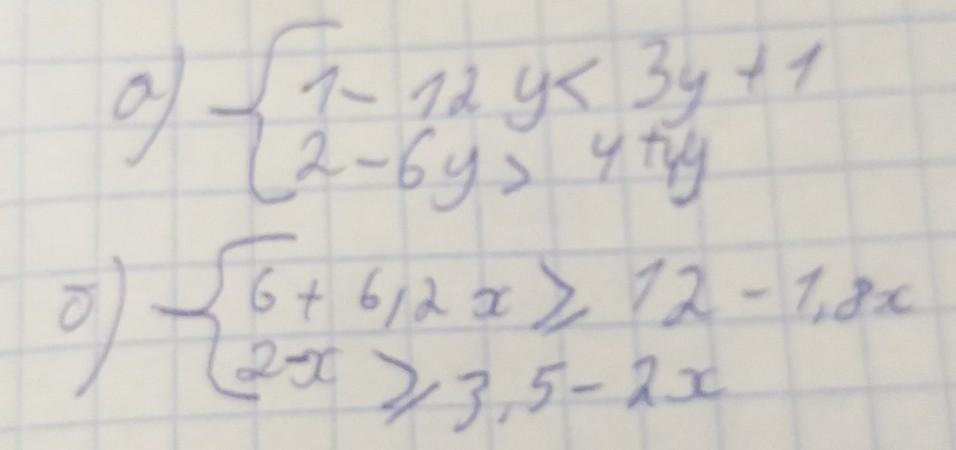 а) { 1 - 12y < 3y + 1
2 - 6y > 4 + 4y
б) { 6 + 6,2x ⩾ 12 - 1,8x
2-x ⩾ 3,5 - 2x